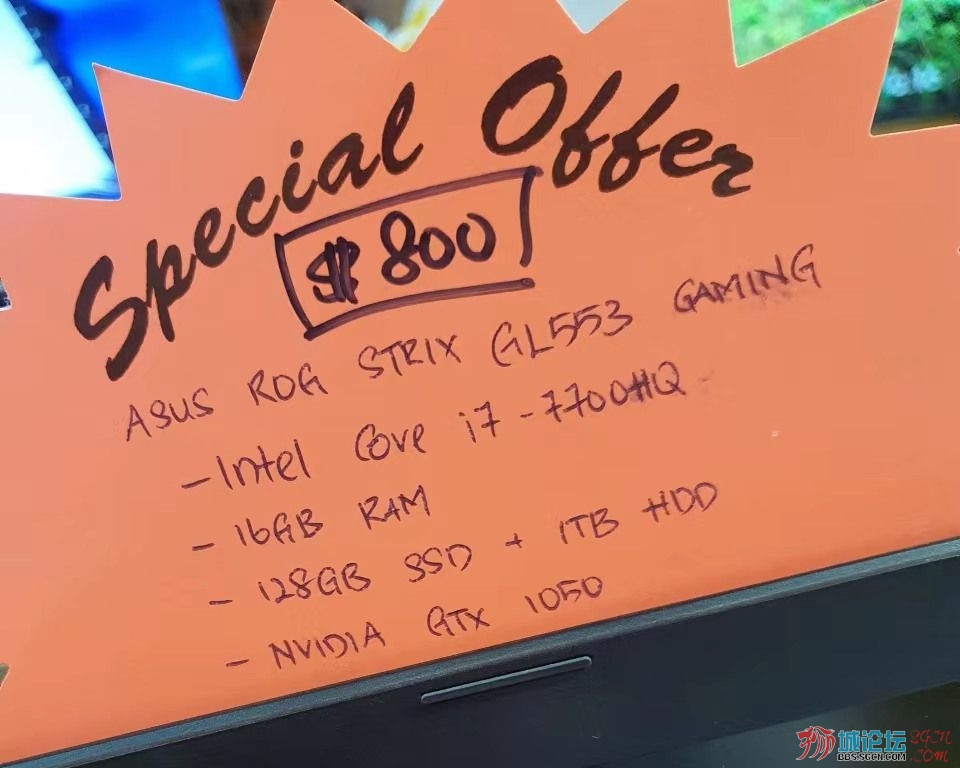 Special Offer
$800
ASUS ROG STRIX GL553 GAMING
- Intel Core i7 - 7700HQ
- 16GB RAM
- 128GB SSD + 1TB HDD
- NVIDIA GTX 1050
狮城论坛 SGCN
BBS.SGCN.COM .COM